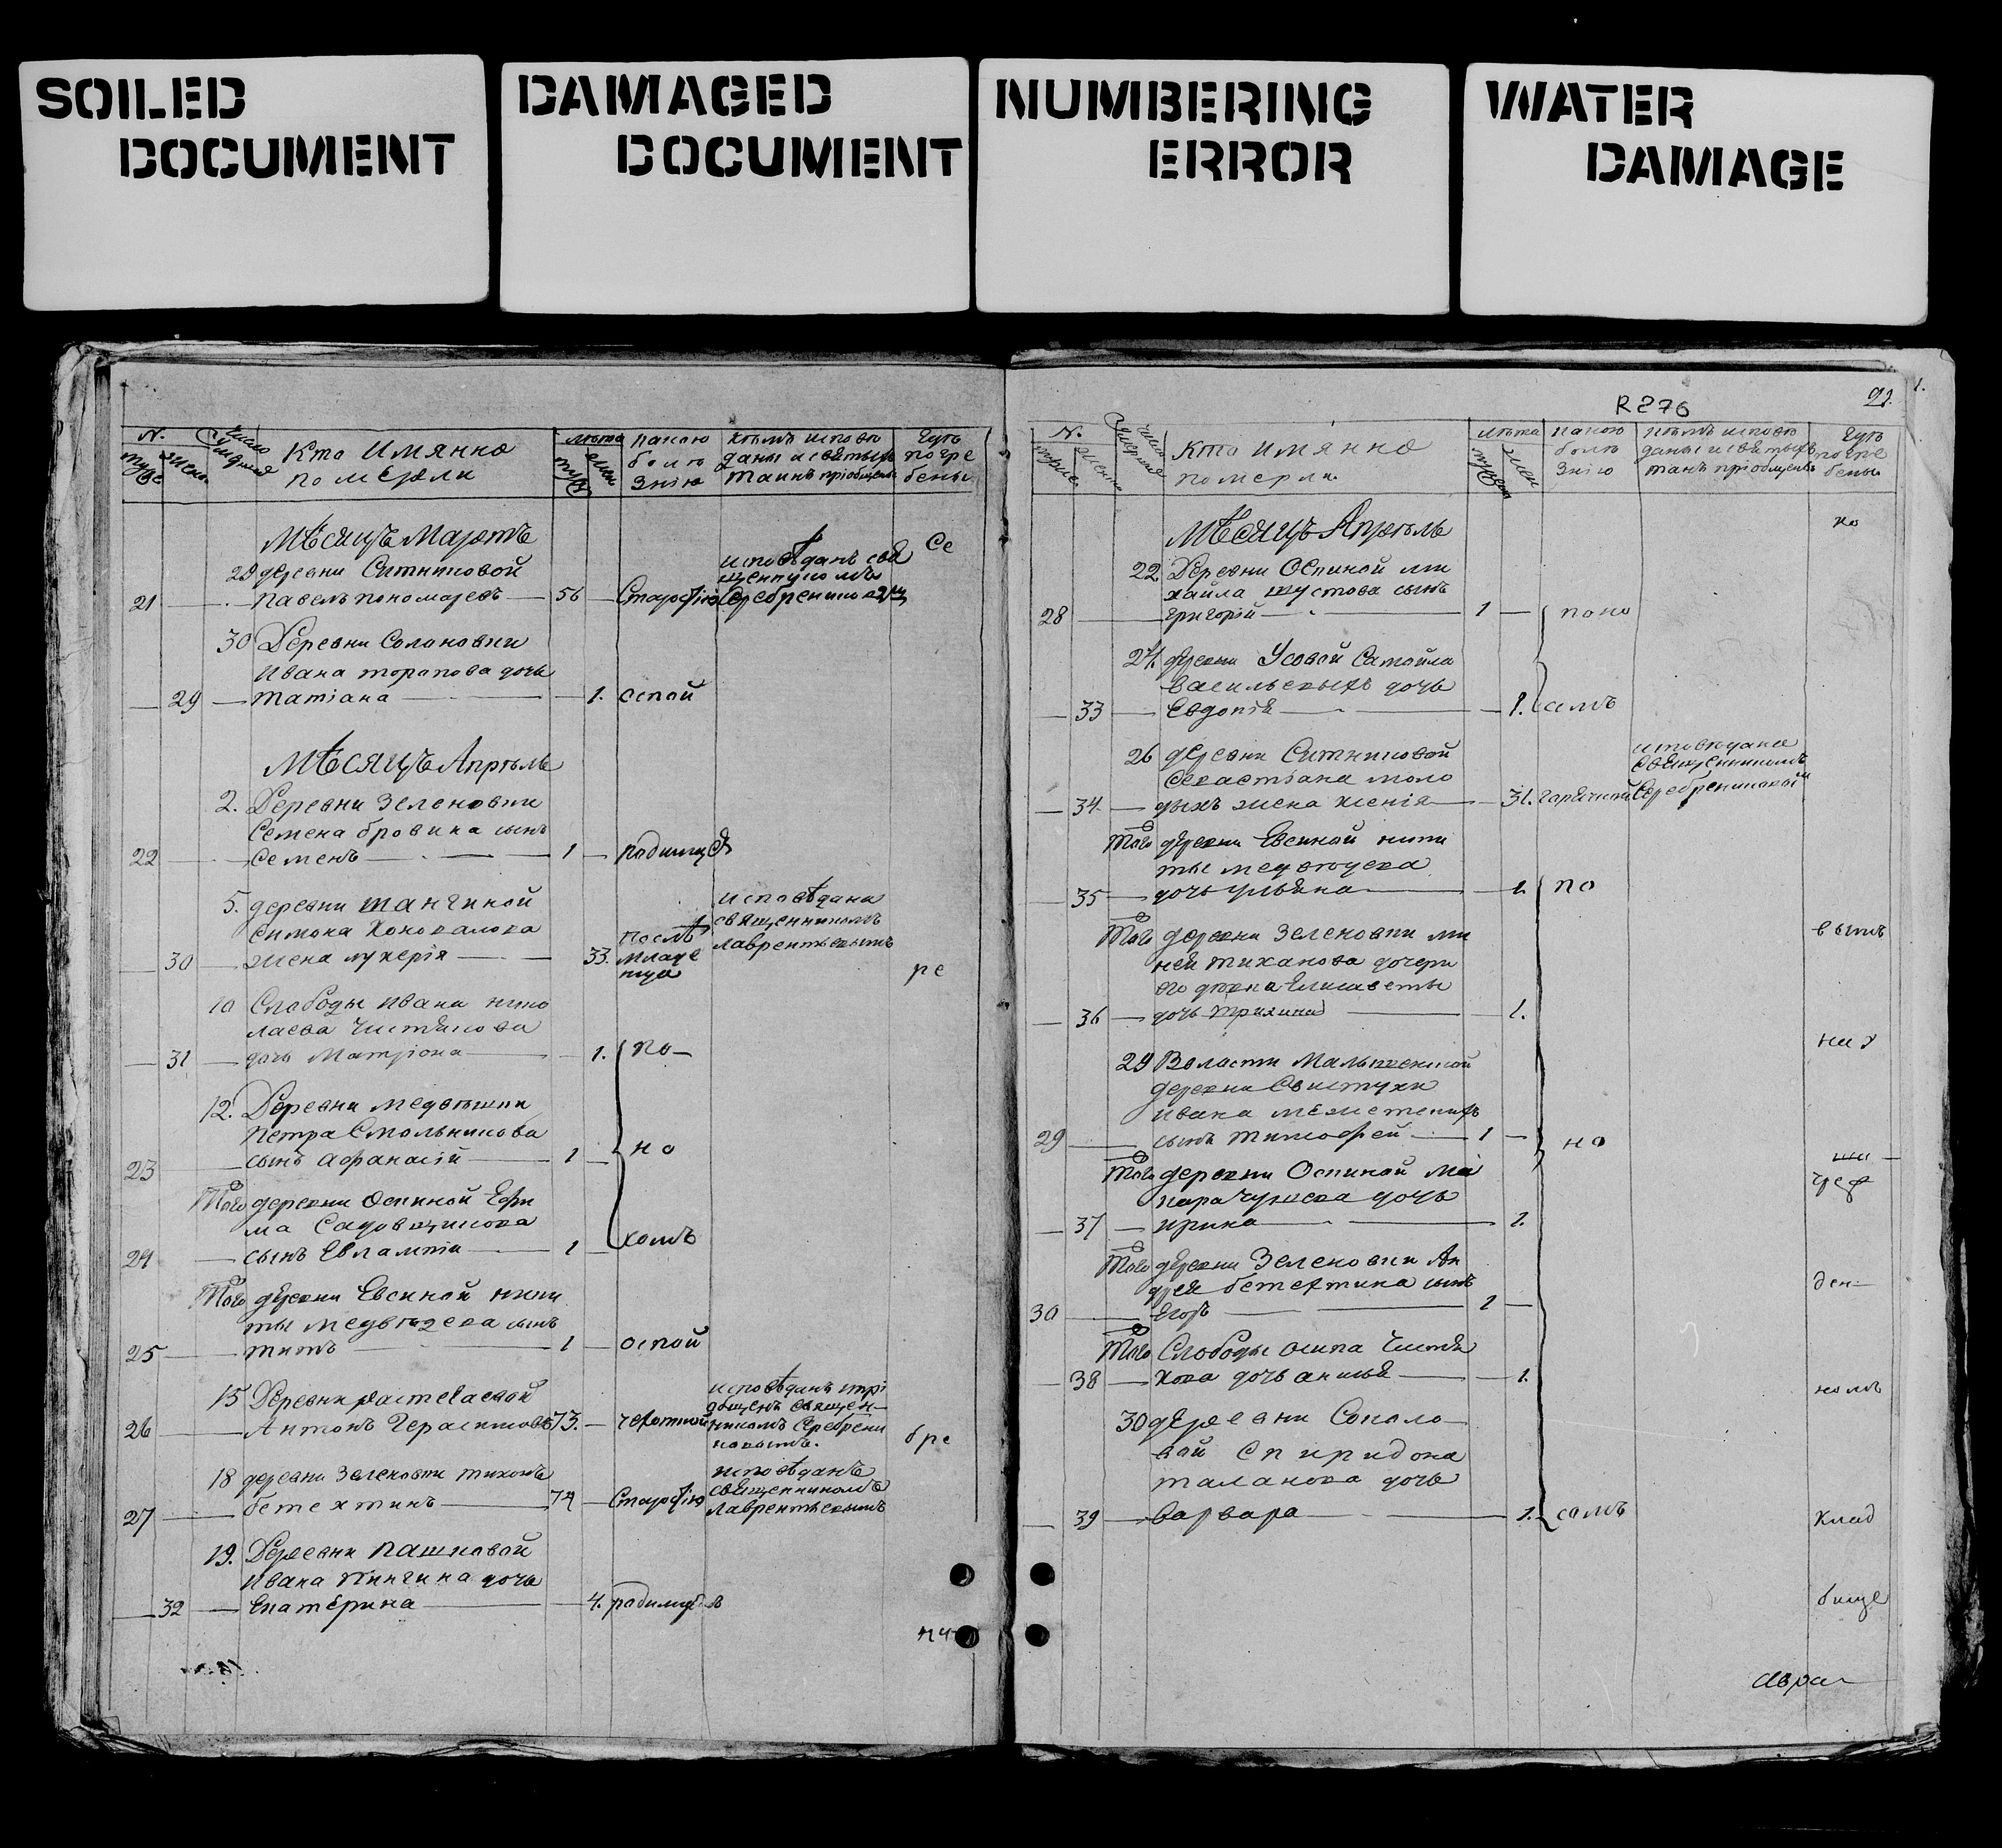 SOILED
DOCUMENT
DAMAGED
DOCUMENT
NUMBERING
ERROR
WATER
DAMAGE
N.
число
Кто имянно
померли
лѣта
какою
болѣ
знію
кѣмъ исповѣ
даны и святыхъ
таинъ пріобщены
гдѣ
погре
бены
Мѣсяцъ Мартъ
29 деревни Ситниковой
21 Павелъ Пономаревъ 56 Старостію
исповѣданъ свя
щенникомъ
Серебрениковымъ
Се
30 Деревни Солоновки
Ивана Торопова дочь
29 Татіана 1. оспой
Мѣсяцъ Апрѣль
2. Деревни Зеленовки
Семена Бровина сынъ
22 Семенъ 1 родимца
5. деревни
Симона Коновалова
30 жена Лукерія 33. послѣ
младе
нца
исповѣдана
священникомъ
Лаврентьевымъ
ре
10 Слободы Ивана Нико
лаева Чистякова
31 дочь Матрона 1. по
12. Деревни Медвѣжки
Петра Смольникова
23 сынъ Афанасій 1 но
Того деревни Оспиной Ефи
ма Садовщикова
24 сынъ Евлампій 1 комъ
Того деревни Евсиной Ники
ты Медвѣдева сынъ
25 Титъ 1 оспой
15 Деревни
26 Антонъ Герасимовъ 73. чехоткой
исповѣданъ и прі
общенъ священ
никомъ Серебрени
ковымъ.
бре
18 деревни Зеленовки Тихонъ
27 Бетехтинъ 74 Старостію
исповѣданъ
священникомъ
Лаврентьевымъ
19. Деревни Пашковой
Ивана Пингина дочь
32 Екатерина 4. родимца
R276
91.
1.
N.
число
Кто имянно
померли.
лѣта
какою
болѣ
знію
кѣмъ исповѣ
даны и святыхъ
таинъ пріобщены
гдѣ
погре
бены
ко
Мѣсяцъ Апрѣль
22. Деревни Оспиной Ми
хайла Шустова сынъ
28 Григорій 1 поно
24. деревни Усовой Самойла
Васильевыхъ дочь
33 Евдокія 1. самъ
26 деревни Ситниковой
Севастіана Моло
34. дыхъ жена Ксенія 31. горячкой
исповѣдана
священникомъ
Серебрениковымъ
Того деревни Евсиной Ники
ты Медвѣдева
35 дочь Ульяна 1. по
Того деревни Зеленовки Ми
ней Тиханова дочери
его Елисаветы
36 дочь 1.
вымъ
29 Волости Малышенской
деревни Свистухи
Ивана
29 сынъ Тимофей 1 но
нах
Того деревни Оспиной Ма
кара дочь
37 Ирина 1.
Того деревни Зеленовки Ан
дрея Бетехтина сынъ
30 Егоръ 1
ден
Того Слободы Осипа Чистя
38 кова дочь Анисья 1.
номъ
30 деревни Соколо
вой Спиридона
Таланова дочь
39 Варвара 1. самъ
клад
бище